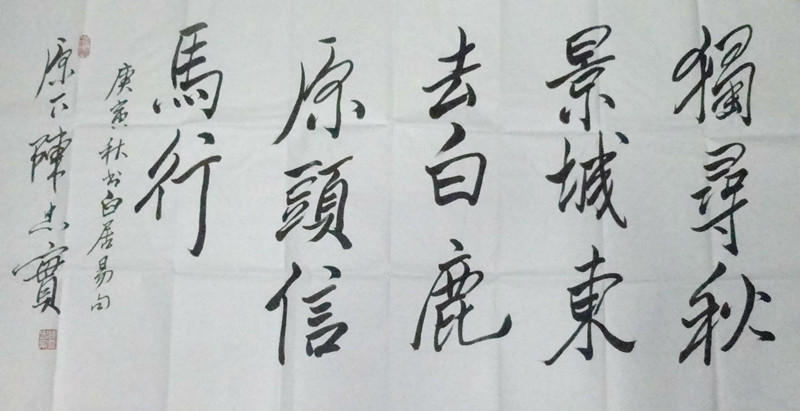 獨尋秋
景城東
去白鹿
原頭信
馬行
庚寅秋书白居易句
原下陳忠實